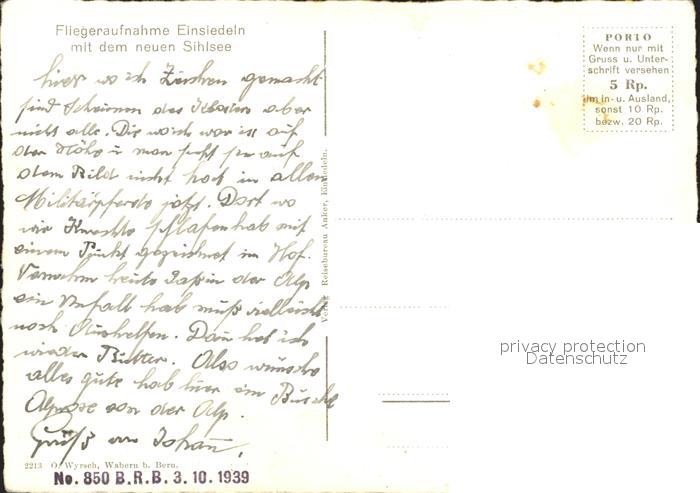 Fliegeraufnahme Einsiedeln
mit dem neuen Sihlsee
hier wo ich Zeichen gemacht
sind Scheunen des Kloster aber
nicht alle. Die wo ich war ist auf
der Höhe u man sieht sie auf
dem Bild nicht hat in allen
Militärpferde jetzt. Dort wo
wir Knechte schlafen hab mit
einem Punkt gezeichnet im Hof.
Vernahm heute daß in der Alp
ein Unfall hab muß vielleicht
noch Aushelfen. Dann hab ich
wieder Butter. Also wünsche
alles gute hab hier ein Büschel
von der Alp.
Gruß von Johann.
Verlag Reisebureau Anker, Einsiedeln.
PORTO
Wenn nur mit
Gruss u. Unter-
schrift versehen
5 Rp.
im In- u. Ausland,
sonst 10 Rp.
bezw. 20 Rp.
privacy protection
Datenschutz
2213 O. Wyrsch, Wabern b. Bern.
No. 850 B.R.B. 3. 10. 1939